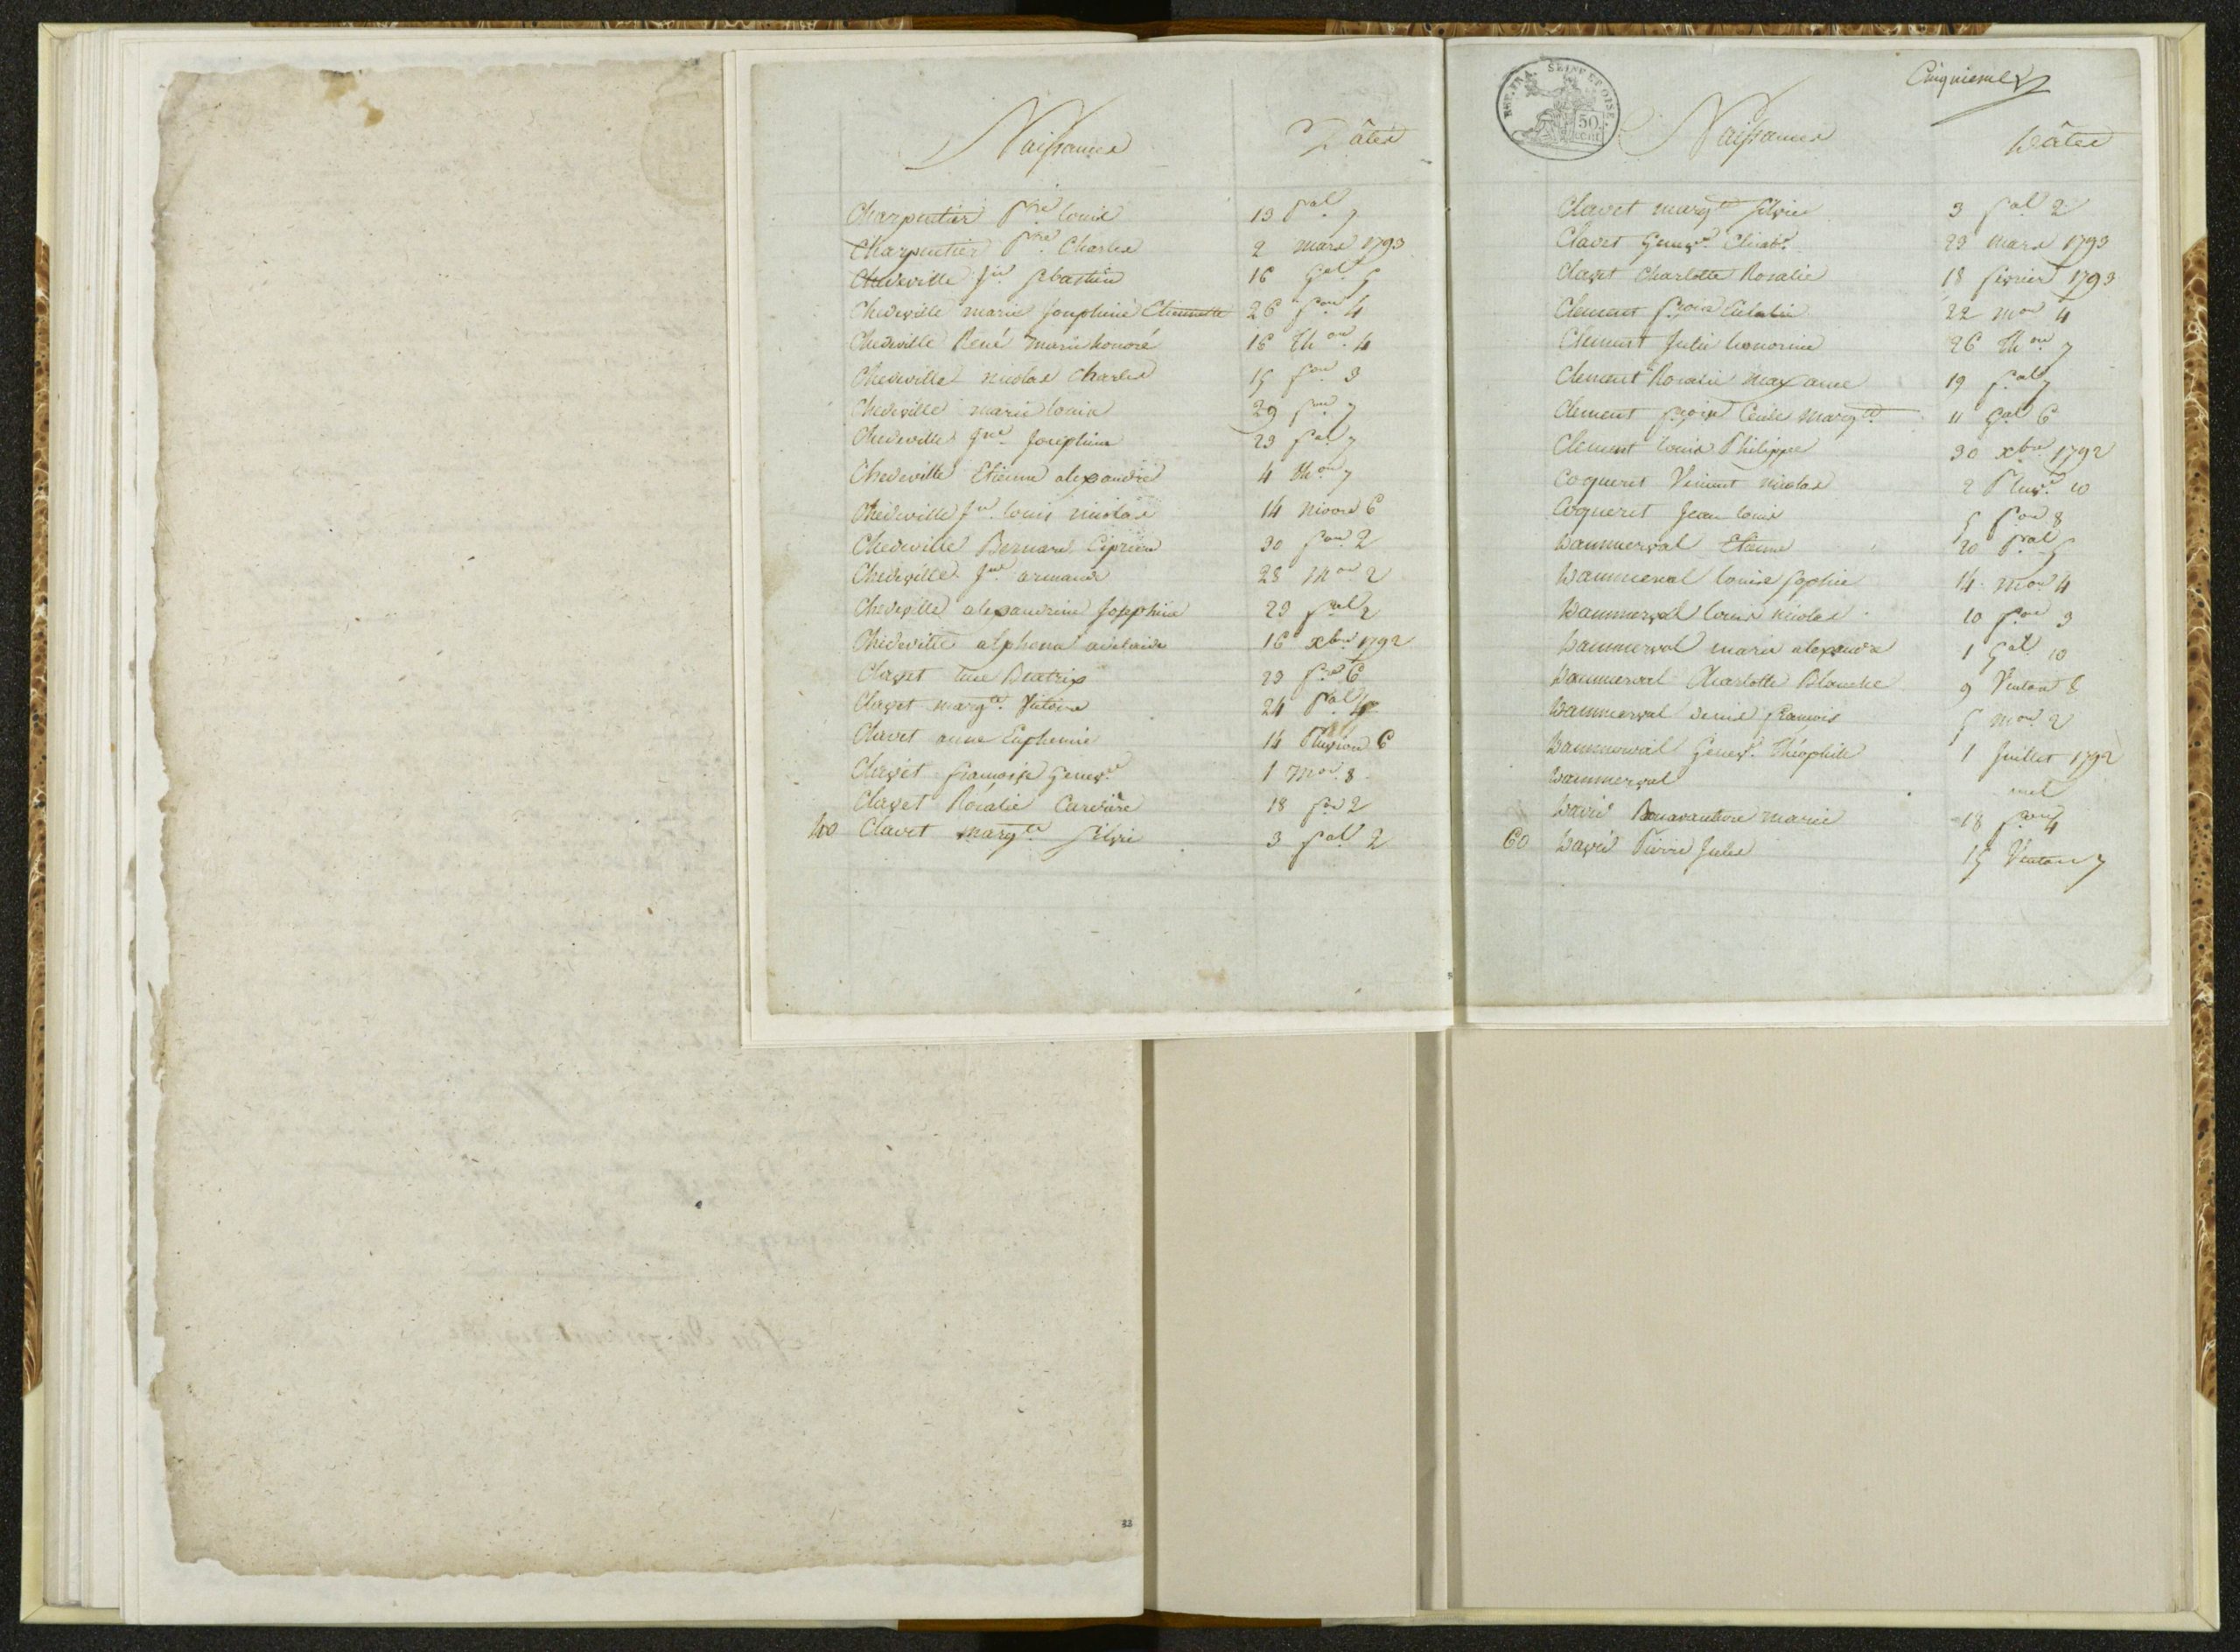 Naissances Dâtes
Charpentier Pre louis 13 pal 7
Charpentier Pre Charles 2 mars 1793
Chedeville Jn Sebastien 16 Gal 5
Chedeville marie Josephine Etiennette 26 4
Chedeville René marie honoré 16 Thor 4
Chedeville nicolas Charles 15 3
Chedeville marie louise 29 7
Chedeville Jne Josephine 23 7
Chedeville Etienne alexandre 4 Thor 7
Chedeville Jn louis nicolas 14 nivose 6
Chedeville Bernard Ciprien 30 2
Chedeville armand 28 mor 2
Chedeville alexandrine Josephine 23 2
Chedeville alphonse adelaide 16 xbre 1792
Clavet Beatrix 23 6
Clavet margte Victoire 24 pal 4
Clavet anne Euphemie 14 Pluviose 6
Clavet françoise Genevve 1 mor 8
Clavet Rosalie 18 2
40 Clavet margte Silvie 3 pal 2
REP. FRA. SEINE ET OISE.
50 cent
Cinquieme
Naissances Dâtes
Clavet margte Silvie 3 pal 2
Clavet Genevve Elisabth 23 mars 1793
Clavet Charlotte Rosalie 18 fevrier 1793
Clement fçoise Eulalie 22 mor 4
Clement Julie honorine 26 Thor 7
Clement Rosalie 19 7
Clement fçoise Cecile Margte 11 Gal 6
Clement louis Philippe 30 xbre 1792
Coqueret Vincent nicolas 2 Pluv 10
Coqueret Jean louis 5 8
Dammerval Etienne 20 pral 5
Dammerval louise Sophie 14 mor 4
Dammerval louis nicolas 10 3
Dammerval marie alexandre 1 Gal 10
Dammerval Charlotte Blanche 9 Ventose 8
Dammerval denis françois 5 mor 2
Dammerval Genevve Théophile 1 Juillet 1792
Dammerval nul
David Bonavanture marie 18 4
60 David Pierre Jules 15 Ventose 7